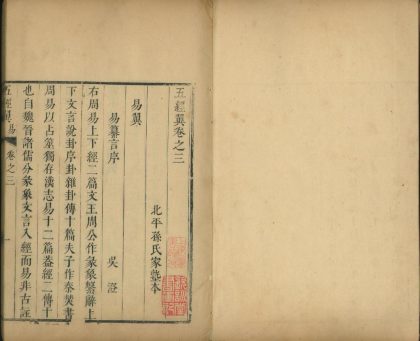 五經翼卷之三
北平孫氏家塾本
易翼
易纂言序
吳澄
右周易上下經二篇文王周公作彖象繫辭上
下文言說卦序卦雜卦傳十篇夫子作秦焚書
周易以占筮獨存漢志易十二篇蓋經二傳十
也自魏晉諸儒分彖象文言入經而易非古註
五經翼 易 卷之三 一